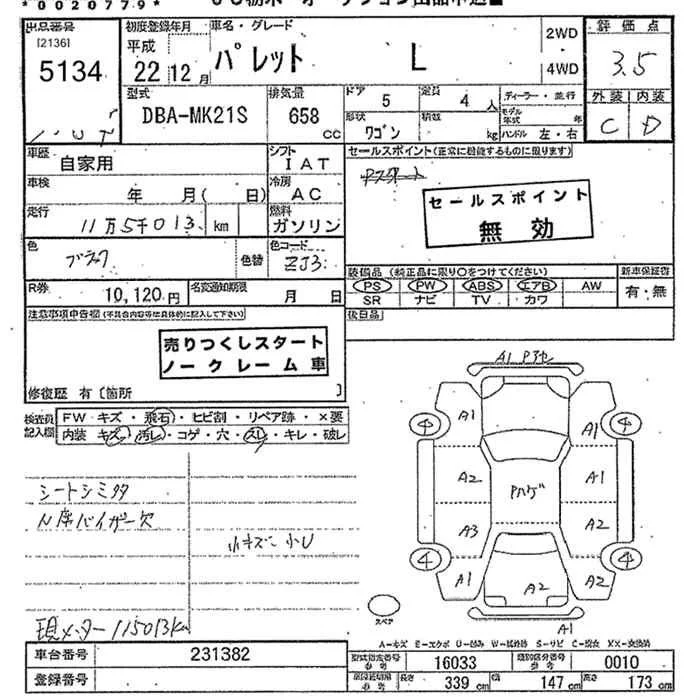 *0020779*
出品番号
[2136]
5134
初度登録年月
平成
22 12 月
車名・グレード
パレット L
2WD
4WD
評価点
3.5
外装 内装
C D
型式
DBA-MK21S
排気量
658 CC
ドア 5
定員 4 人
ディーラー・並行
形状 ワゴン
積載 kg
モデル年式 年
ハンドル 左・右
車歴
自家用
シフト
IAT
セールスポイント(正常に機能するものに限ります)
セールスポイント
無効
車検
年 月( 日)
冷房
AC
走行
11万5千013 km
燃料
ガソリン
色
ブラック
色替
カラーコード
ZJ3
R券
10,120円
名変通知期限
月 日
装備品(純正品に限り○をつけてください)
PS PW ABS エアB AW
SR ナビ TV カワ
新車保証書
有・無
注意事項申告欄(不具合内容等は具体的に記入して下さい)
後日品
売りつくしスタート
ノークレーム車
修復歴 有〔箇所 〕
検査員記入欄
FW キズ・飛石・ヒビ割・リペア跡・×要
内装 キズ・汚レ・コゲ・穴・スレ・キレ・破レ
シートシミタタ
N席バイザー欠
小キズ 小U
現メーター 115013km
A1
A1
A1
4
4
A2
Pハゲ
A1
A3
A2
4
4
A1
A2
A2
A1
スペア
A-キズ E-エクボ U-凹み W-補修跡 S-サビ C-腐食 XX-交換済
車台番号 231382
登録番号
型式指定番号 参考 16033
類別区分番号 参考 0010
長さ 339 cm 巾 147 cm 高さ 173 cm